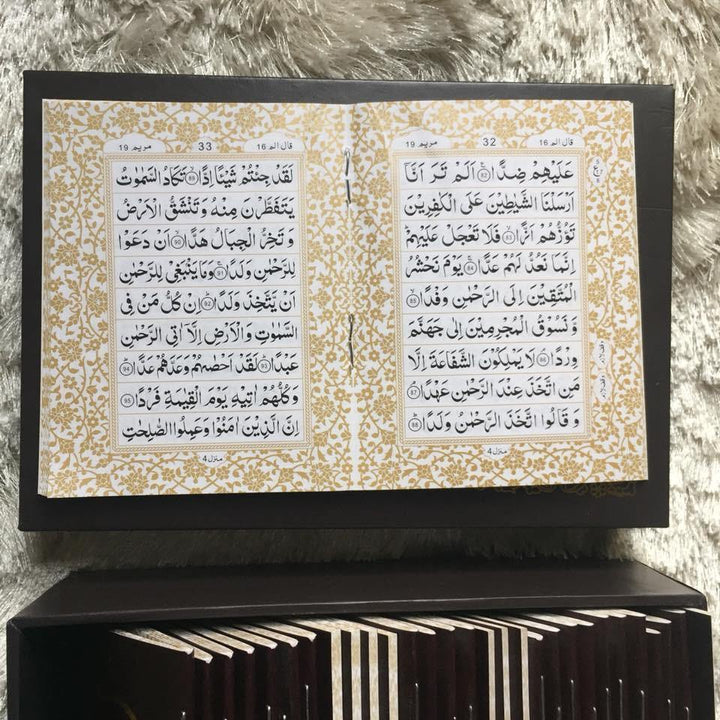 قال الم 16
32
مريم 19
عَلَيْهِمْ ضِدًّا ﴿82﴾ اَلَمْ تَرَ اَنَّا
اَرْسَلْنَا الشَّيٰطِيْنَ عَلَى الْكٰفِرِيْنَ
تَؤُزُّهُمْ اَزًّا ﴿83﴾ فَلَا تَعْجَلْ عَلَيْهِمْ
اِنَّمَا نَعُدُّ لَهُمْ عَدًّا ﴿84﴾ يَوْمَ نَحْشُرُ
الْمُتَّقِيْنَ اِلَى الرَّحْمٰنِ وَفْدًا ﴿85﴾
وَّ نَسُوْقُ الْمُجْرِمِيْنَ اِلٰى جَهَنَّمَ
وِرْدًا ﴿86﴾ لَا يَمْلِكُوْنَ الشَّفَاعَةَ اِلَّا
مَنِ اتَّخَذَ عِنْدَ الرَّحْمٰنِ عَهْدًا ﴿87﴾
وَ قَالُوا اتَّخَذَ الرَّحْمٰنُ وَلَدًا ﴿88﴾
منزل 4
قال الم 16
33
مريم 19
لَقَدْ جِئْتُمْ شَيْئًا اِدًّا ﴿89﴾ تَكَادُ السَّمٰوٰتُ
يَتَفَطَّرْنَ مِنْهُ وَ تَنْشَقُّ الْاَرْضُ
وَ تَخِرُّ الْجِبَالُ هَدًّا ﴿90﴾ اَنْ دَعَوْا
لِلرَّحْمٰنِ وَلَدًا ﴿91﴾ وَمَا يَنْۢبَغِيْ لِلرَّحْمٰنِ
اَنْ يَّتَّخِذَ وَلَدًا ﴿92﴾ اِنْ كُلُّ مَنْ فِي
السَّمٰوٰتِ وَ الْاَرْضِ اِلَّاۤ اٰتِي الرَّحْمٰنِ
عَبْدًا ﴿93﴾ لَقَدْ اَحْصٰىهُمْ وَعَدَّهُمْ عَدًّا ﴿94﴾
وَ كُلُّهُمْ اٰتِيْهِ يَوْمَ الْقِيٰمَةِ فَرْدًا ﴿95﴾
اِنَّ الَّذِيْنَ اٰمَنُوْا وَعَمِلُوا الصّٰلِحٰتِ
منزل 4